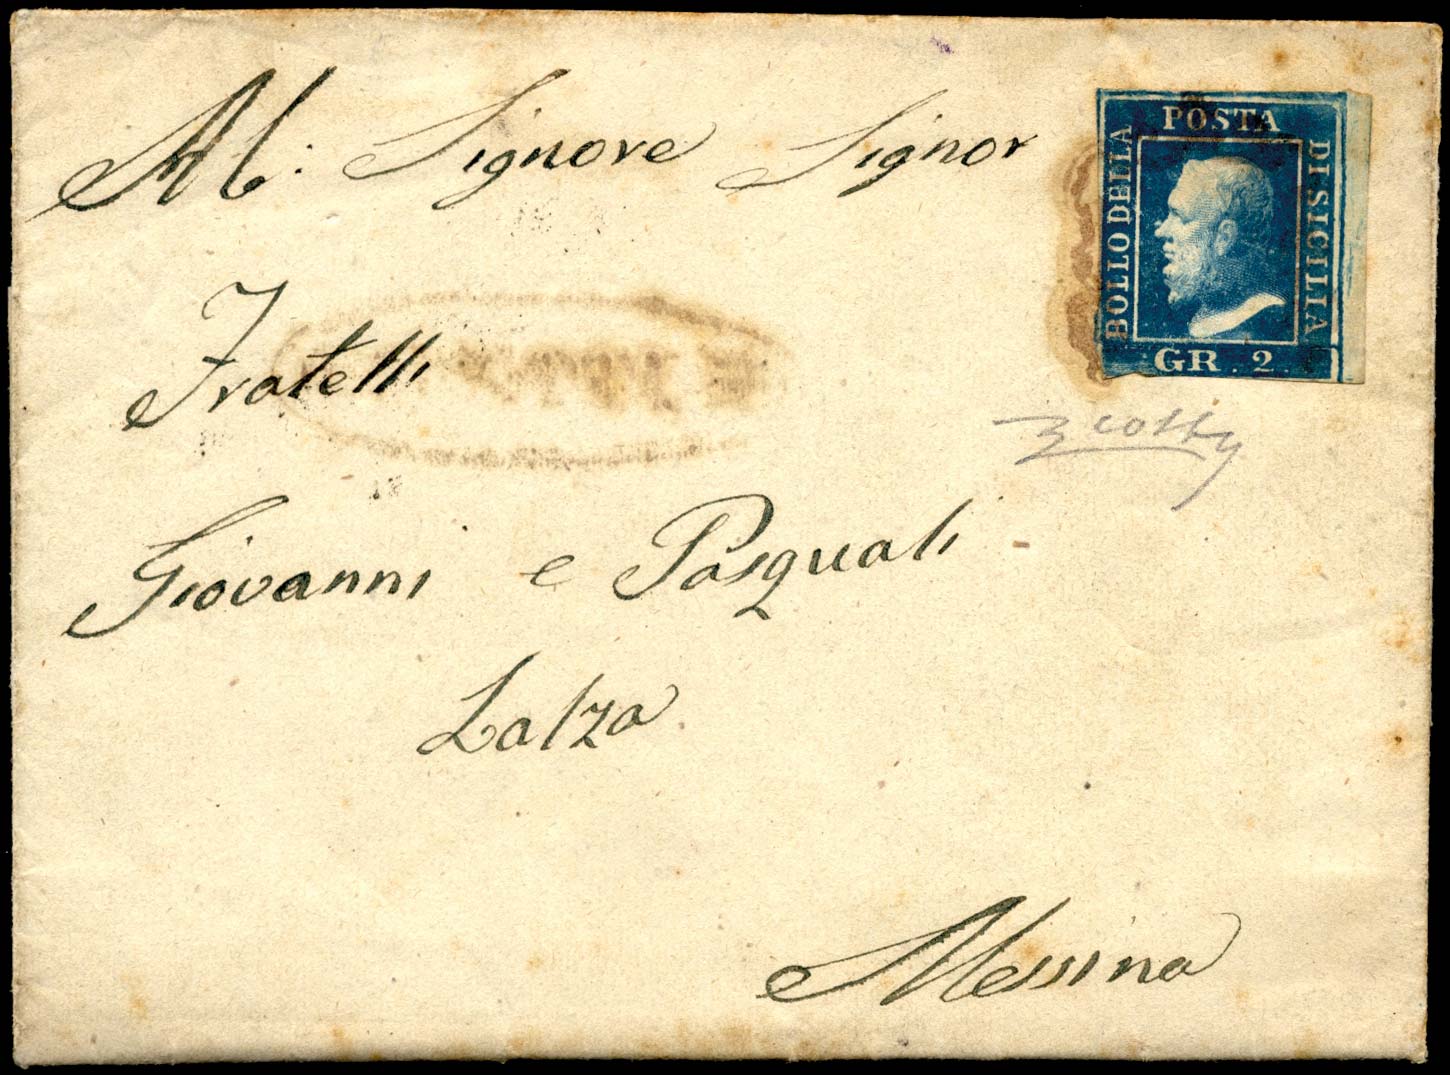 Al: Signore Signor
Fratelli
Giovanni e Pasquali
Lalza
Messina
POSTA
BOLLO DELLA
DI SICILIA
GR. 2.